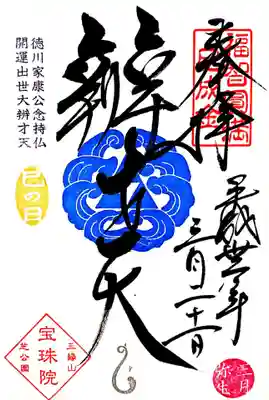 奉拝
平成卅一年
三月二十一日
辨才天
徳川家康公念持仏
開運出世大辨才天
巳の日
三縁山
宝珠院
芝公園
三月
弥生